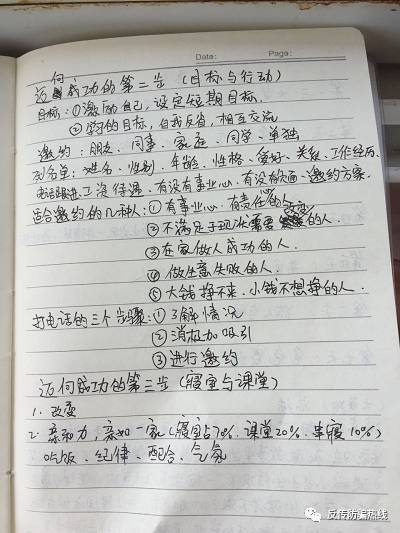 Date:
Page:
迈向成功的第二步 (目标与行动)
目标:①激励自己,设定短期目标.
②的目标,自我反省,相互交流
邀约:朋友、同事、家庭、同学、单独
列名单:姓名、性别、年龄、性格、爱好、关系、工作经历.
电话跟进、工资待遇、有没有事业心、有没有、邀约方案.
适合邀约的几种人:①有事业心、有责任心的
②不满足于现状需要改变的人.
③在家做人成功的人.
④做生意失败的人.
⑤大钱挣不来、小钱不想挣的人.
打电话的三个步骤:①了解情况
②消极加吸引
③进行邀约
迈向成功的第三步(寝室与课堂)
1. 改变
2. 亲和力,亲如一家(寝室占70%. 课堂20%. 串寝10%)
吃饭、纪律、配合、气氛
反传防骗热线